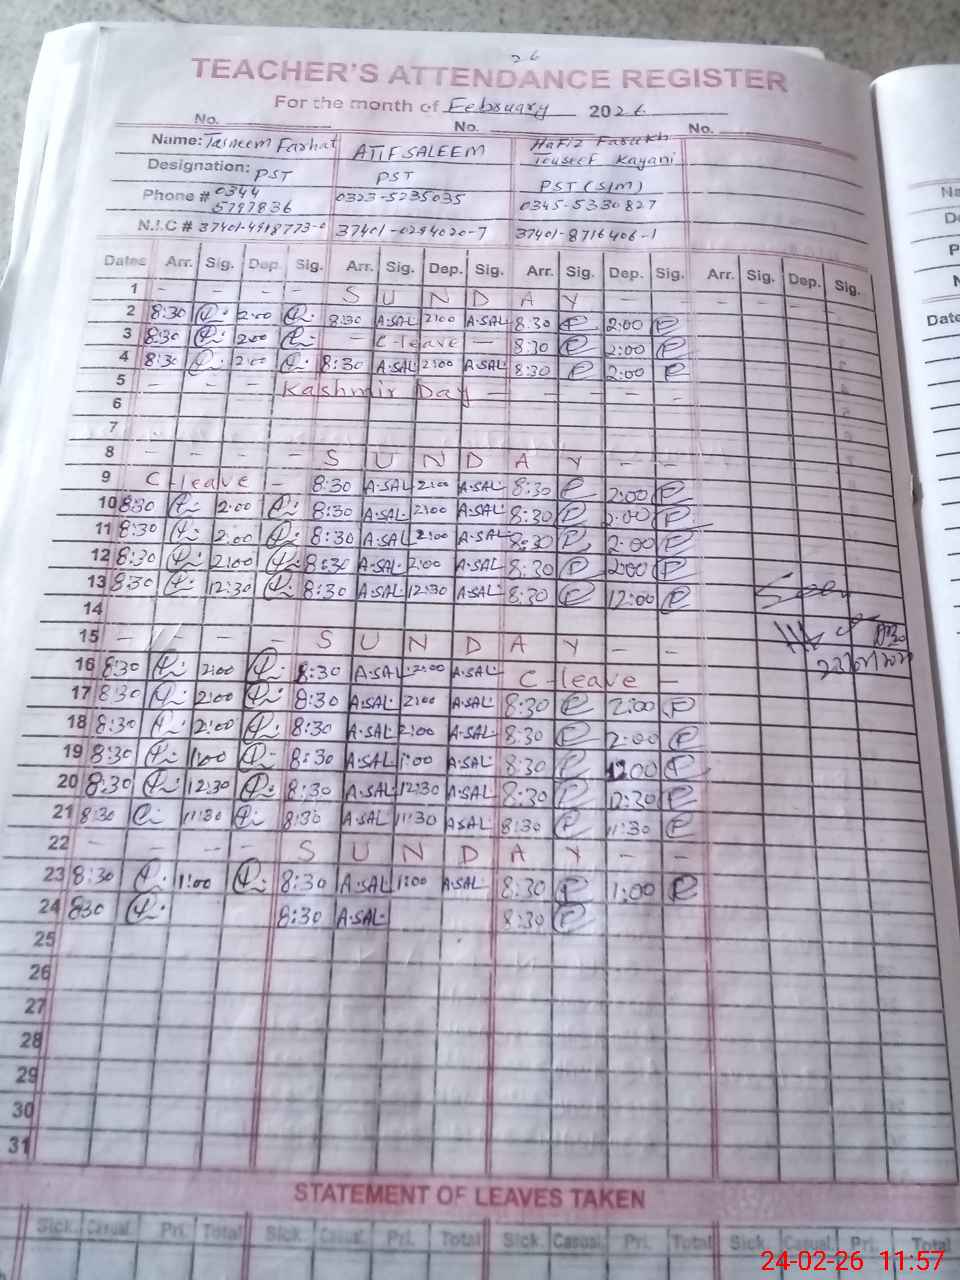 26
TEACHER'S ATTENDANCE REGISTER
For the month of February 2026
No. No. No.
Name: Tasneem Farhat ATIF SALEEM Hafiz Farukh Yousef Kayani
Designation: PST PST PST (SIM)
Phone # 0344 5797836 0323-5235035 0345-5330827
N.I.C # 37401-4918773-0 37401-0294020-7 37401-8716406-1
Dates Arr. Sig. Dep. Sig. Arr. Sig. Dep. Sig. Arr. Sig. Dep. Sig. Arr. Sig. Dep. Sig.
1 - - - - S U N D A Y - - - - -
2 8:30 2:00 8:30 A.SAL 2:00 A.SAL 8:30 2:00
3 8:30 2:00 - C-leave - 8:30 2:00
4 8:30 2:00 8:30 A.SAL 2:00 A.SAL 8:30 2:00
5 - - - Kashmir Day - - - - -
6
7
8 - - - - S U N D A Y - -
9 C-leave - 8:30 A.SAL 2:00 A.SAL 8:30 2:00
10 8:30 2:00 8:30 A.SAL 2:00 A.SAL 8:30 2:00
11 8:30 2:00 8:30 A.SAL 2:00 A.SAL 8:30 2:00
12 8:30 2:00 8:30 A.SAL 2:00 A.SAL 8:30 2:00
13 8:30 12:30 8:30 A.SAL 12:30 A.SAL 8:30 12:00
14
15 - - - - S U N D A Y - -
16 8:30 2:00 8:30 A.SAL 2:00 A.SAL C-leave -
17 8:30 2:00 8:30 A.SAL 2:00 A.SAL 8:30 2:00
18 8:30 2:00 8:30 A.SAL 2:00 A.SAL 8:30 2:00
19 8:30 1:00 8:30 A.SAL 1:00 A.SAL 8:30
20 8:30 12:30 8:30 A.SAL 12:30 A.SAL 8:30 12:30
21 8:30 11:30 8:30 A.SAL 11:30 A.SAL 8:30 11:30
22 - - - - S U N D A Y - -
23 8:30 1:00 8:30 A.SAL 1:00 A.SAL 8:30 1:00
24 8:30 8:30 A.SAL 8:30
25
26
27
28
29
30
31
STATEMENT OF LEAVES TAKEN
Sick. Casual. Pri. Total Sick. Casual. Pri. Total Sick. Casual. Pri. Total Sick. Casual. Pri. Total
24-02-26 11:57